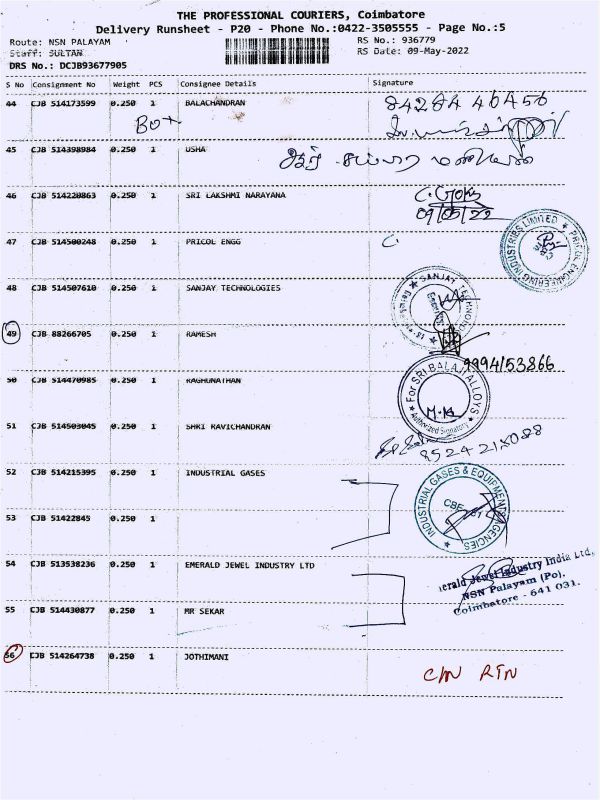 THE PROFESSIONAL COURIERS, Coimbatore
Delivery Runsheet - P20 - Phone No.:0422-3505555 - Page No.:5
Route: NSN PALAYAM RS No.: 936779
Staff: SULTAN RS Date: 09-May-2022
DRS No.: DCJB93677905
S No Consignment No Weight PCS Consignee Details Signature
44 CJB 514173599 0.250 1 BALACHANDRAN
Box
45 CJB 514398984 0.250 1 USHA
46 CJB 514220863 0.250 1 SRI LAKSHMI NARAYANA
09/05/22
47 CJB 514500248 0.250 1 PRICOL ENGG
PRICOL ENGINEERING INDUSTRIES LIMITED
48 CJB 514507610 0.250 1 SANJAY TECHNOLOGIES
SANJAY
49 CJB 88266705 0.250 1 RAMESH
9994153866
50 CJB 514470985 0.250 1 RAGHUNATHAN
For SRI BALAJI ALLOYS
M.K
Authorized Signatory
51 CJB 514503045 0.250 1 SHRI RAVICHANDRAN
52 CJB 514215395 0.250 1 INDUSTRIAL GASES
INDUSTRIAL GASES & EQUIPMENT AGENCIES
53 CJB 51422845 0.250 1
54 CJB 513538236 0.250 1 EMERALD JEWEL INDUSTRY LTD
Jewel Industry India Ltd,
NSN Palayam (Po),
Coimbatore - 641 031.
55 CJB 514430877 0.250 1 MR SEKAR
56 CJB 514264738 0.250 1 JOTHIMANI
C/N RTN